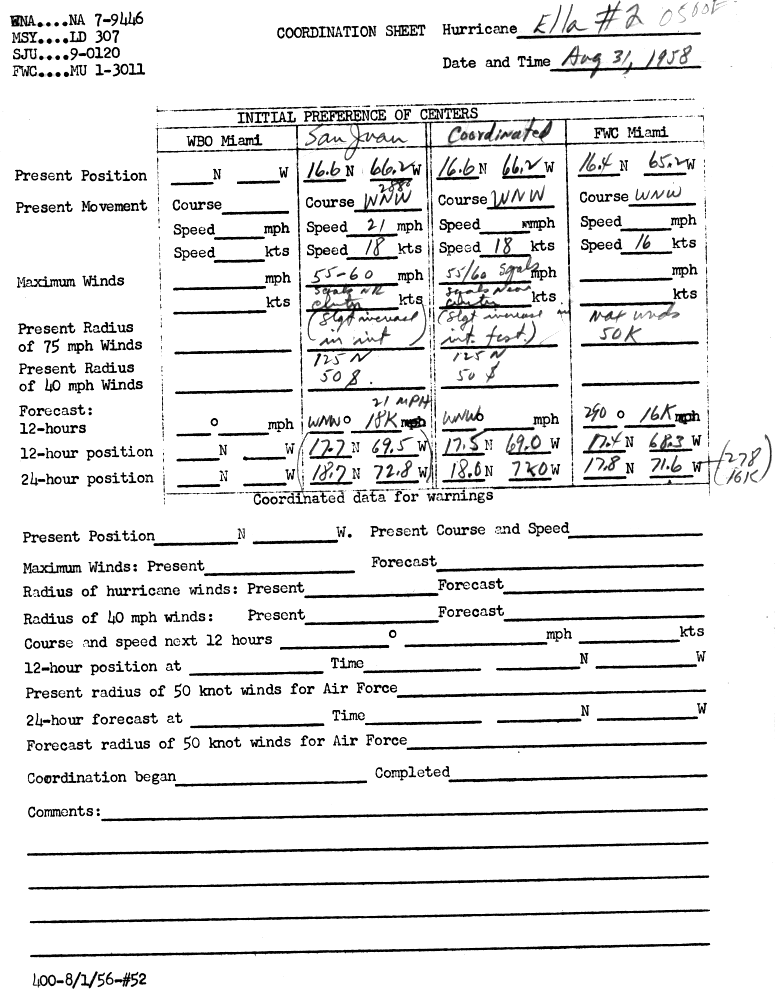 WNA....NA 7-9446
MSY....LD 307
SJU....9-0120
FWC....MU 1-3011
COORDINATION SHEET Hurricane Ella #2
Date and Time Aug 31, 1958
INITIAL PREFERENCE OF CENTERS
WBO Miami San Juan Coordinated FWC Miami
Present Position N W 16.6 N 66.2 W 16.6 N 66.2 W 16.4 N 65.2 W
Present Movement Course Course WNW Course WNW Course WNW
Speed mph Speed 21 mph Speed mph Speed mph
Speed kts Speed 18 kts Speed 18 kts Speed 16 kts
Maximum Winds mph 55-60 mph 55/60 sqals mph mph
kts kts sqals Near kts kts
Present Radius of 75 mph Winds (Slgt increase in int) (Slgt increase in int. fcst.) Max winds 50K
Present Radius of 40 mph Winds 125 N 50 S. 125 N 50 S
21 MPH
Forecast:
12-hours o mph WNW o 18K mph WNW o mph 290 o 16K mph
12-hour position N W 17.7 N 69.5 W 17.5 N 69.0 W 17.4 N 68.3 W
24-hour position N W 18.7 N 72.8 W 18.0 N W 17.8 N 71.6 W (278 16K)
Coordinated data for warnings
Present Position N W. Present Course and Speed
Maximum Winds: Present Forecast
Radius of hurricane winds: Present Forecast
Radius of 40 mph winds: Present Forecast
Course and speed next 12 hours o mph kts
12-hour position at Time N W
Present radius of 50 knot winds for Air Force
24-hour forecast at Time N W
Forecast radius of 50 knot winds for Air Force
Coordination began Completed
Comments:
400-8/1/56-#52